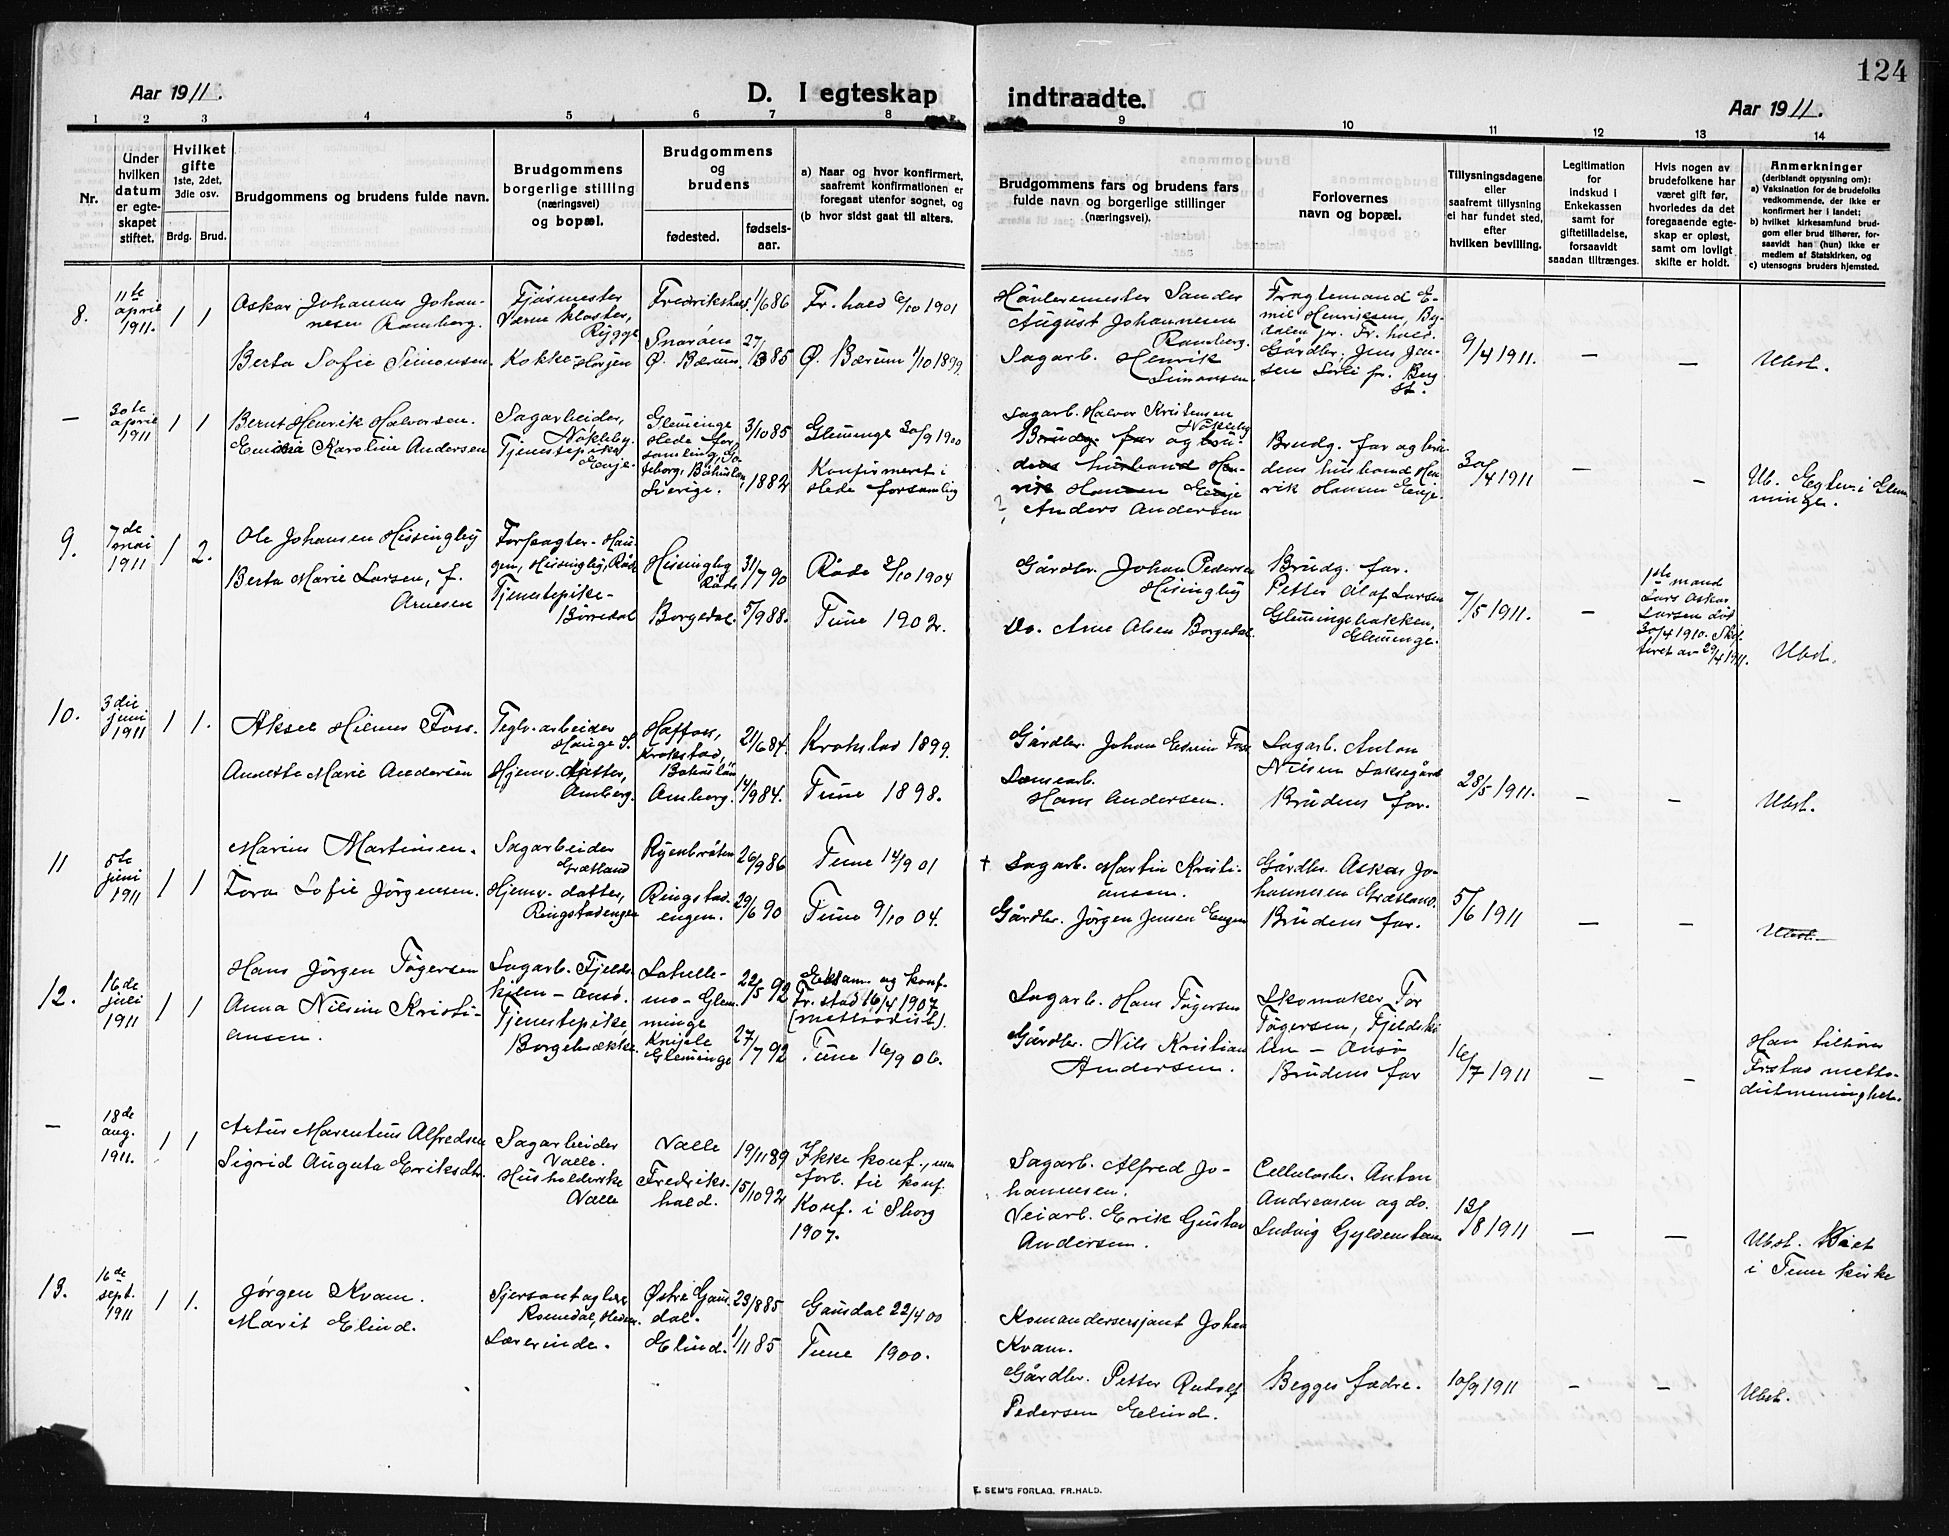 124
Aar 1911.
D. I egteskap
indtraadte.
Aar 1911.
1 2 3 4 5 6 7 8 9 10 11 12 13 14
Nr.
Under hvilken datum er egteskapet stiftet.
Hvilket gifte 1ste, 2det, 3die osv.
Brdg. Brud.
Brudgommens og brudens fulde navn.
Brudgommens borgerlige stilling (næringsvei) og bopæl.
Brudgommens og brudens
fødested.
fødselsaar.
a) Naar og hvor konfirmert, saafremt konfirmationen er foregaat utenfor sognet, og
(b hvor sidst gaat til alters.
Brudgommens fars og brudens fars fulde navn og borgerlige stillinger (næringsvei).
Forlovernes navn og bopæl.
Tillysningsdagene eller saafremt tillysning ei har fundet sted, efter hvilken bevilling.
Legitimation for indskud i Enkekassen samt for giftetilladelse, forsaavidt saadan tiltrænges.
Hvis nogen av brudefolkene har været gift før, hvorledes da det foregaaende egteskap er opløst, samt om lovligt skifte er holdt.
Anmerkninger (deriblandt opysning om):
a) Vaksination for de brudefolks vedkommende, der ikke er konfirmert her i landet;
b) hvilket kirkesamfund brudgom eller brud tilhører, forsaavidt han (hun) ikke er medlem af Statskirken, og
c) utensogns bruders hjemsted.
8.
11te april 1911.
1 1
Oskar Johannes Johannesen Ramberg.
Berta Sofie Simonsen.
Fjøsmester Værne kloster, Rygge
Kokke - Horgen
Fredrikshald
1/6 86
Snarøen Ø. Bærum.
27/3 85
Fr. hald 6/10 1901
Ø. Bærum 1/10 1899.
Høvleremester Sander August Johannesen Ramberg.
Sagarb. Henrik Simonsen.
Fragtemand Emil Henriksen, Bydalen pr. Fr. hald.
Gårdbr. Jens Jensen Lorli pr. Berg st.
9/4 1911.
—
—
Ubst.
—
30te april 1911
1 1
Bernt Henrik Halvorsen.
Emilia Karoline Andersen
Sagarbeider, Nøkleby.
Tjenestepike Eenje.
Glemminge
3/10 85
Hede forsamling, Göteborg, Bohuslen, Sverige.
1882
Glemminge 30/9 1900
Konfirmeret i Hede forsamling
Sagarb. Halvor Kristensen Nøkleby
Brudg. far og brudens husbond Henrik Hansen Eenje
? Anders Andersen
Brudg. far og brudens husbond Henrik Hansen Eenje.
30/4 1911
—
—
Ub. Egtev. i Glemminge.
9.
7de mai 1911
1 2.
Ole Johansen Hissingby
Berta Marie Larsen, f. Arnesen
Forpagter - Haugen, Hissingby, Råde
Tjenestepike - Börredal
Hissingby Råde
31/7 90
Borgedal.
5/9 88.
Råde 2/10 1904
Tune 1902.
Gårdbr. Johan Pedersen Hisingby
Do. Arne Olsen Borgedal.
Brudg. far.
Petter Olaf Larsen Glemmingebakken, Glemminge.
7/5 1911.
—
1ste mand Lars Oskar Larsen död 30/4 1910. Skifteret av 29/4 1911.
Ubst.
10.
3die juni 1911
1 1.
Aksel Hilmer Foss.
Annette Marie Andersen
Teglv. arbeider Hauge S.
Hjemv. datter, Amberg.
Haffoss, Krokstad, Bohuslän
21/6 84.
Amberg.
14/9 84.
Krokstad 1899.
Tune 1898.
Gårdbr. Johan Edvin Foss
Lensearb. Hans Andersen.
Sagarb. Anton Nilsen Laksegård
Brudens far.
28/5 1911.
—
—
Ubst.
11
5te juni 1911
1 1
Marius Martinsen.
Tora Sofie Jørgensen.
Sagarbeider Grætland
Hjemv. datter, Ringstadengen
Ryenbråten
26/9 86
Ringstadengen.
29/6 90
Tune 14/9 01
Tune 9/10 04.
+ Sagarb. Martin Kristiansen.
Gårdbr. Jørgen Jensen Engen
Gårdbr. Oskar Johannesen Grætland.
Brudens far.
5/6 1911
—
—
Ubst.
12.
16de juli 1911
1 1
Hans Jörgen Tögersen
Anna Nilsine Kristiansen.
Sagarb. Fjeldskilen - Ånsö.
Tjenestepike, Borgebække
Lahellemo - Glemminge
22/5 92
Knijele Glemminge
27/7 92
Eksam. og konf. Fr. stad 16/4 1907 (mettodist).
Tune 16/9 06.
Sagarb. Hans Tögersen
Gårdbr. Nils Kristian Andersen.
Skomaker Tor Tögersen, Fjeldskilen - Ånsö
Brudens far
16/7 1911
—
—
Han tilhører Fr.stad mettodistmenighet.
—
18de aug. 1911.
1 1
Artur Marentius Alfredsen
Sigrid Augusta Eriksdtr.
Sagarbeider Valle.
Husholderske Valle
Valle
19/11 89
Fredrikshald.
15/10 92
Ikke konf., men forb. til konf.
Konf. i Sborg 1907.
Sagarb. Alfred Johannesen.
Veiarb. Erik Gustav Andersen.
Cellulosb. Anton Andreasen og do. Ludvig Gyldenstein
13/8 1911
—
—
Ubst. Viet i Tune kirke
13.
16de sept. 1911
1 1.
Jørgen Kvam.
Marit Elind.
Sjersant og lærer Romedal, Hedem.
Lærerinde.
Østre Gausdal.
23/8 85
Elind.
1/11 85
Gausdal 22/4 00
Tune 1900.
Komandersersjant Johan Kvam.
Gårdbr. Petter Rudolf Pedersen Elind.
Begges fædre.
10/9 1911
—
—
Ubst.
E. SEM'S FORLAG. FR.HALD.